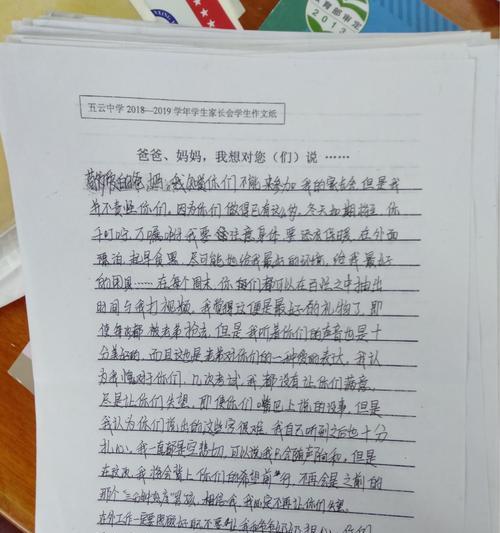 教育部审定
2013
五云中学 2018—2019 学年学生家长会学生作文纸
爸爸、妈妈，我想对您（们）说 ……
爸 妈 我 你们不能来参加我的家长会 但是我
并不责怪你们。因为你们做得已有这么多。冬天如期 你
千叮咛，万嘱咐 我要 注意身体 要 保暖 在外面
尽可能地给我最好的环境，给我最好
的 …… 在每个周末 你们都可以在百忙之中抽出
时间与我打视频。我觉得这便是最好的礼物了，即
使每次都被老弟抢去 但是 我听着你们的声音也是十
分美好的，而且这也是老弟对你们的一种爱的表达，我认
为我愧对于你们，几次考试，我都没有让你们满意
总是让你们失望，即便你们嘴巴上说的没事，但是
我认为你们说出的这些字很难，我自不听到之后也十分
扎心，我一直都是空想 可以说我 的和，但是
在这次，我将会背上你们的希望前行，不再会是之前的
那个三分钟热度 相信我，我 不再让你们失望。
在外工作一定要 不要让我和爷爷奶奶担心，你们